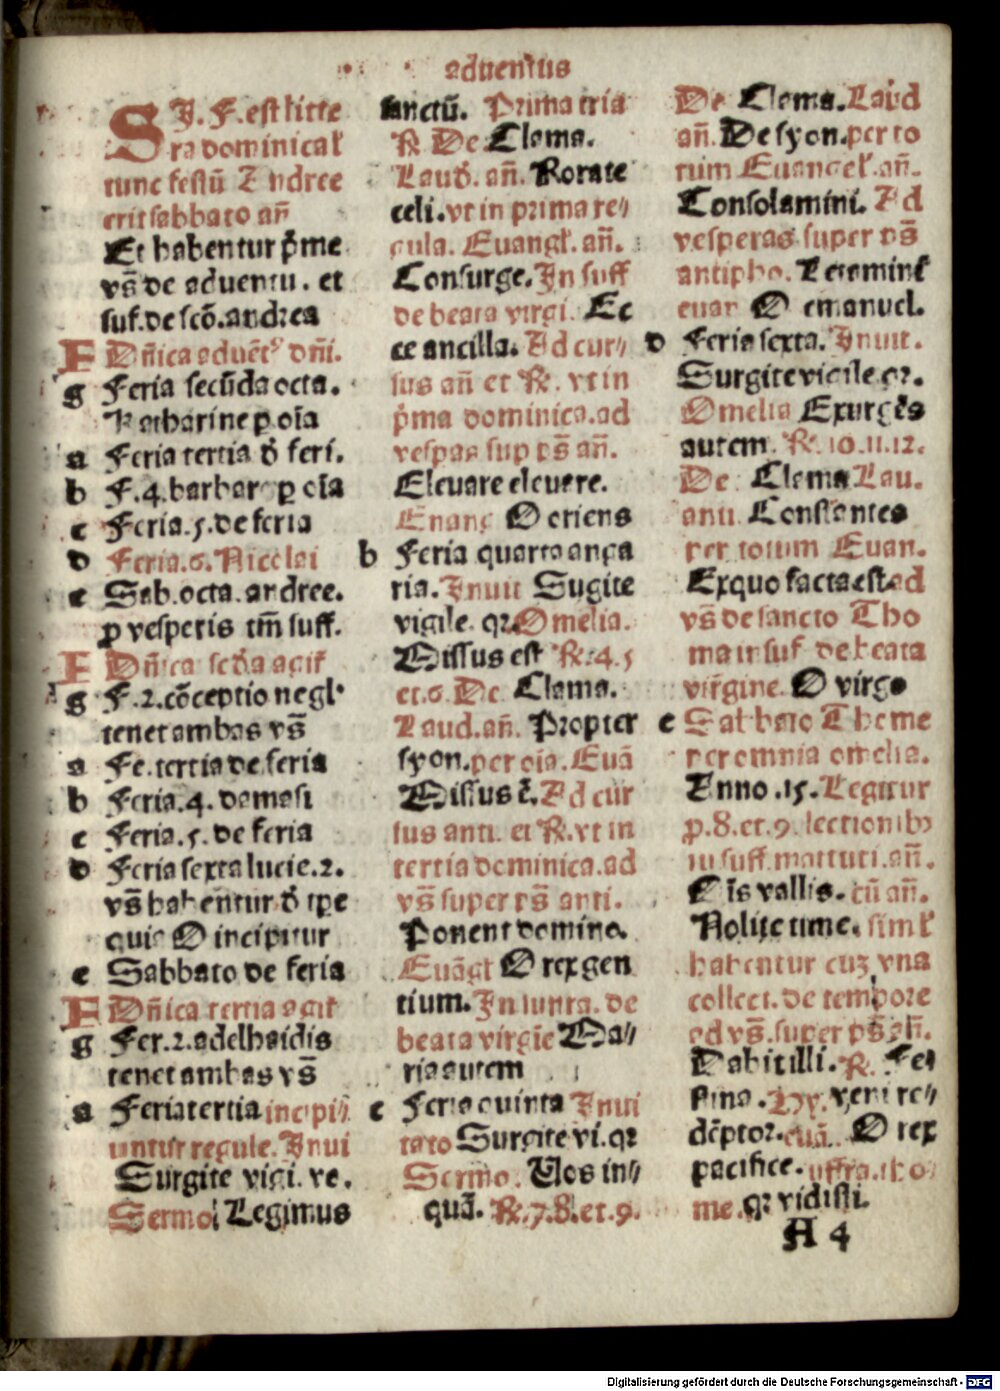 aduentus
SI. F. est litte
ra dominicał
tunc festū Andree
erit sabbato an̄
Et habentur p̄me
vs̄ de aduentu. et
suf. de scō. andrea
F Dn̄ica aduēt⁹ dn̄i.
g Feria secūda octa.
Katharine ꝑ oīa
a Feria tertia đ feri.
b F. 4. barbare ꝑ oīa
c Feria. 5. de feria
d Feria. 6. Nicolai
e Sab. octa. andree.
ꝑ vesperis tm̄ suff.
F Dn̄ica scđa agit̉
g F. 2. cōceptio negl'
tenet ambas vs̄
a Fe. tertia de feria
b Feria. 4. damasi
c Feria. 5. de feria
d Feria sexta lucie. 2.
vs̄ habentur đ ipe
quia O incipitur
e Sabbato de feria
F Dn̄ica tertia agit̉
g Fer. 2. adelhaidis
tenet ambas vs̄
a Feria tertia incipi//
untur regule. Inui
Surgite vigi. ve.
Sermo. Legimus
sanctū. Prima tria
℟. De Clama.
Lauđ. an̄. Rorate
celi. vt in prima re//
gula. Euangł. an̄.
Consurge. In suff
de beata virgi. Ec
ce ancilla. Ad cur//
sus an̄ et ℟. vt in
p̄ma dominica. ad
vespas sup ps̄ an̄.
Eleuare eleuare.
Euang O oriens
b Feria quarta anga
ria. Inuit Sugite
vigile. qr. Omelia.
Missus est ℟. 4. 5
et. 6. De Clama.
Laud. an̄. Propter
syon. per oia. Euā
Missus ē. Ad cur
sus anti. et ℟. vt in
tertia dominica. ad
vs̄ super ps̄ anti.
Ponent domino.
Euāgł O rex gen
tium. In iunta. de
beata virgīe Ma//
ria autem
c Feria quinta Inui
tato Surgite vi. qr
Sermo. Vos in//
quā. ℟. 7. 8. et. 9.
De Clama. Laud
an̄. De syon. per to
tum Euangeł. an̄.
Consolamini. Ad
vesperas super ps̄
antipho. Letaminł
euan O emanuel.
d Feria sexta. Inuit.
Surgite vigile qr.
Omelia Exurgēs
autem ℟. 10. 11. 12.
De Clama Lau.
anti Constantes
per totum Euan.
Ex quo facta est ad
vs̄ de sancto Tho
ma in suf de beata
virgine. O virgo
e Sabbato Thome
per omnia omelia.
Anno. 15. Legitur
ꝑ. 8. et. 9. lectionibꝰ
in suff. mattuti. an̄.
Oīs vallis. cū an̄.
Nolite time. simł
habentur cuꝫ vna
collect. de tempore
ad vs̄. super ps̄ an̄.
Dabit illi. ℟. Fe
stina. Vꝟ. veni re//
dēptor. euā. O rex
pacifice. uffra. tho
me. qr vidisti.
A 4
Digitalisierung gefördert durch die Deutsche Forschungsgemeinschaft - DFG